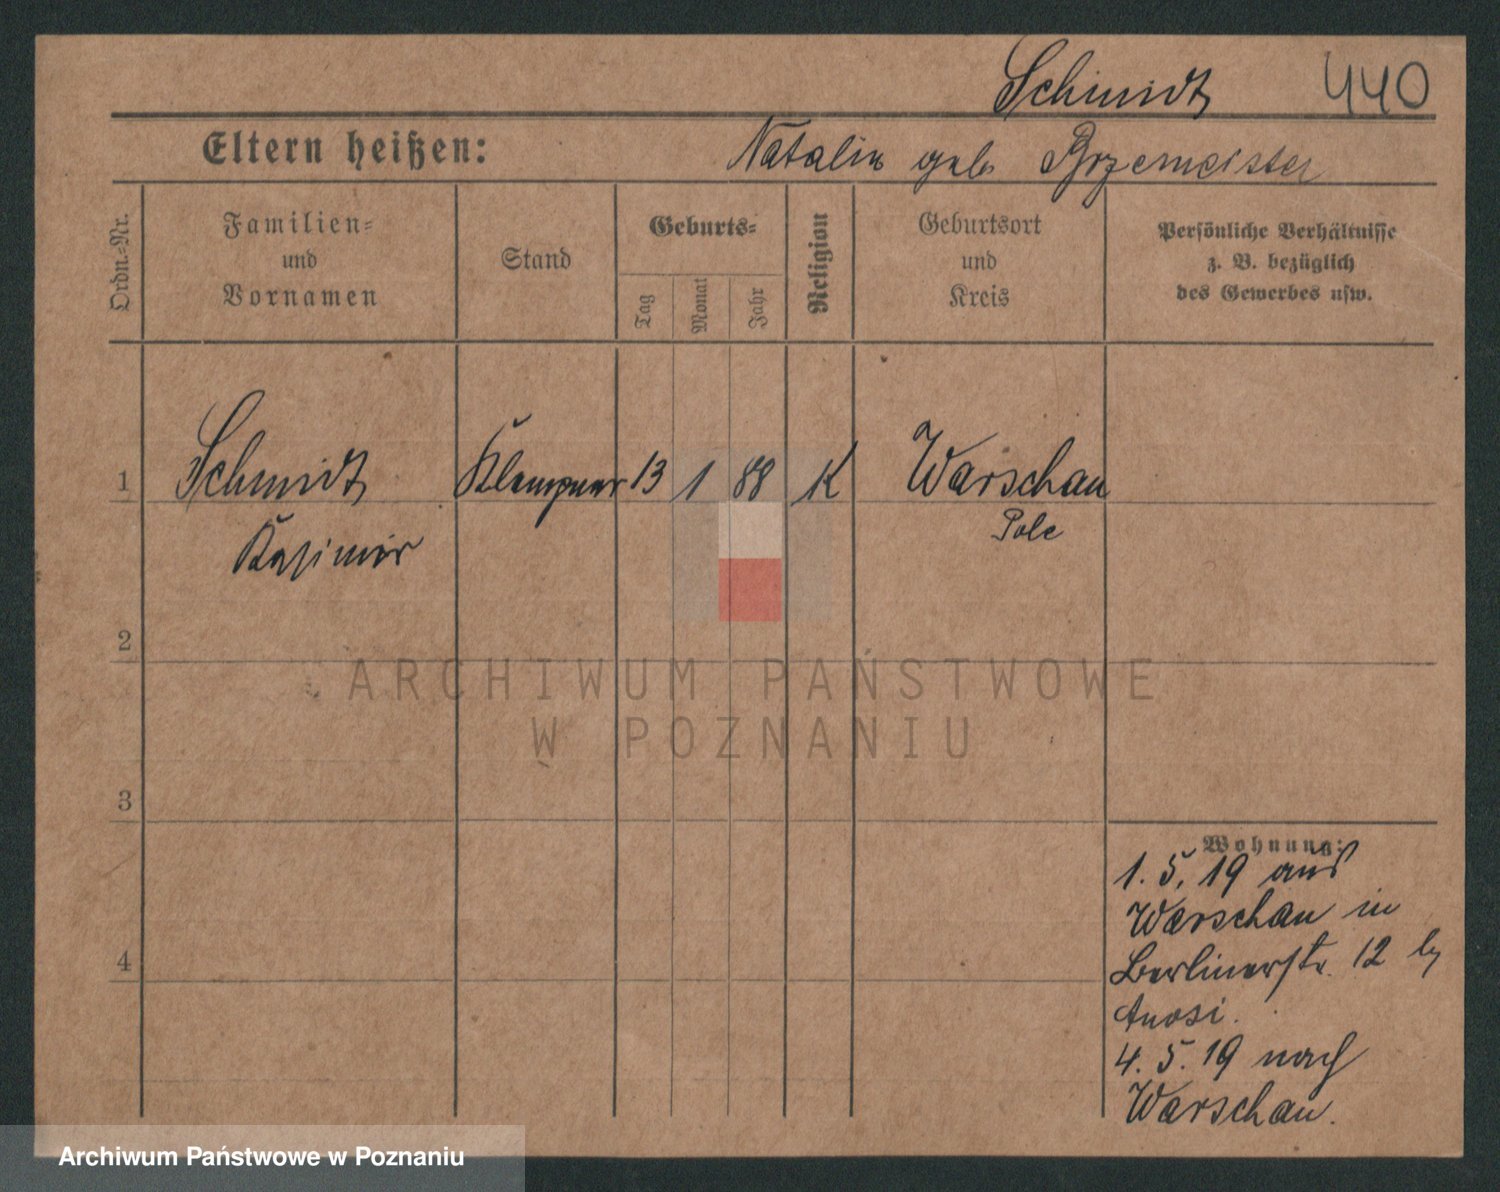 Schmidt 440
Eltern heißen:
Natalie geb Brzemeister
Ordn.-Nr.
Familien-
und
Vornamen
Stand
Geburts-
Tag
Monat
Jahr
Religion
Geburtsort
und
Kreis
Persönliche Verhältnisse
z. B. bezüglich
des Gewerbes usw.
1 Schmidt Klempner 13 1 88 K Warschau
Kasimir Pole
2
3
4
Wohnung:
1. 5. 19 aus
Warschau in
Berlinerstr. 12
4. 5. 19 nach
Warschau.
ARCHIWUM PAŃSTWOWE
W POZNANIU
Archiwum Państwowe w Poznaniu